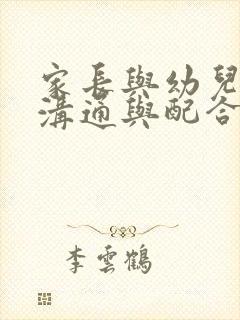 家長與幼兒
溝通與配合
李雲鶴